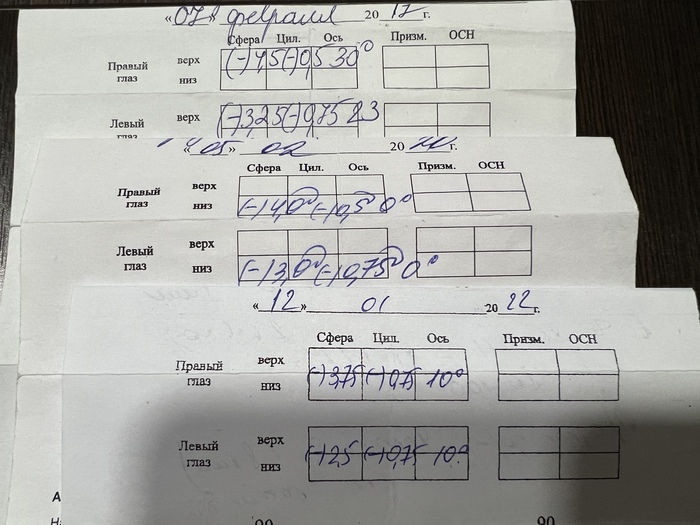 «07» февраля 2017 г.
Сфера Цил. Ось Призм. ОСН
Правый глаз верх (-)4,5 (-)0,5 30°
низ
Левый глаз верх (-)3,25 (-)0,75 23
«05» 02 2020 г.
Сфера Цил. Ось Призм. ОСН
Правый глаз верх
низ (-)4,0 (-)0,5 0°
Левый глаз верх
низ (-)3,0 (-)0,75 0°
«12» 01 2022 г.
Сфера Цил. Ось Призм. ОСН
Правый глаз верх
низ (-)3,75 (-)0,75 10°
Левый глаз верх
низ (-)2,5 (-)0,75 10°
90 90